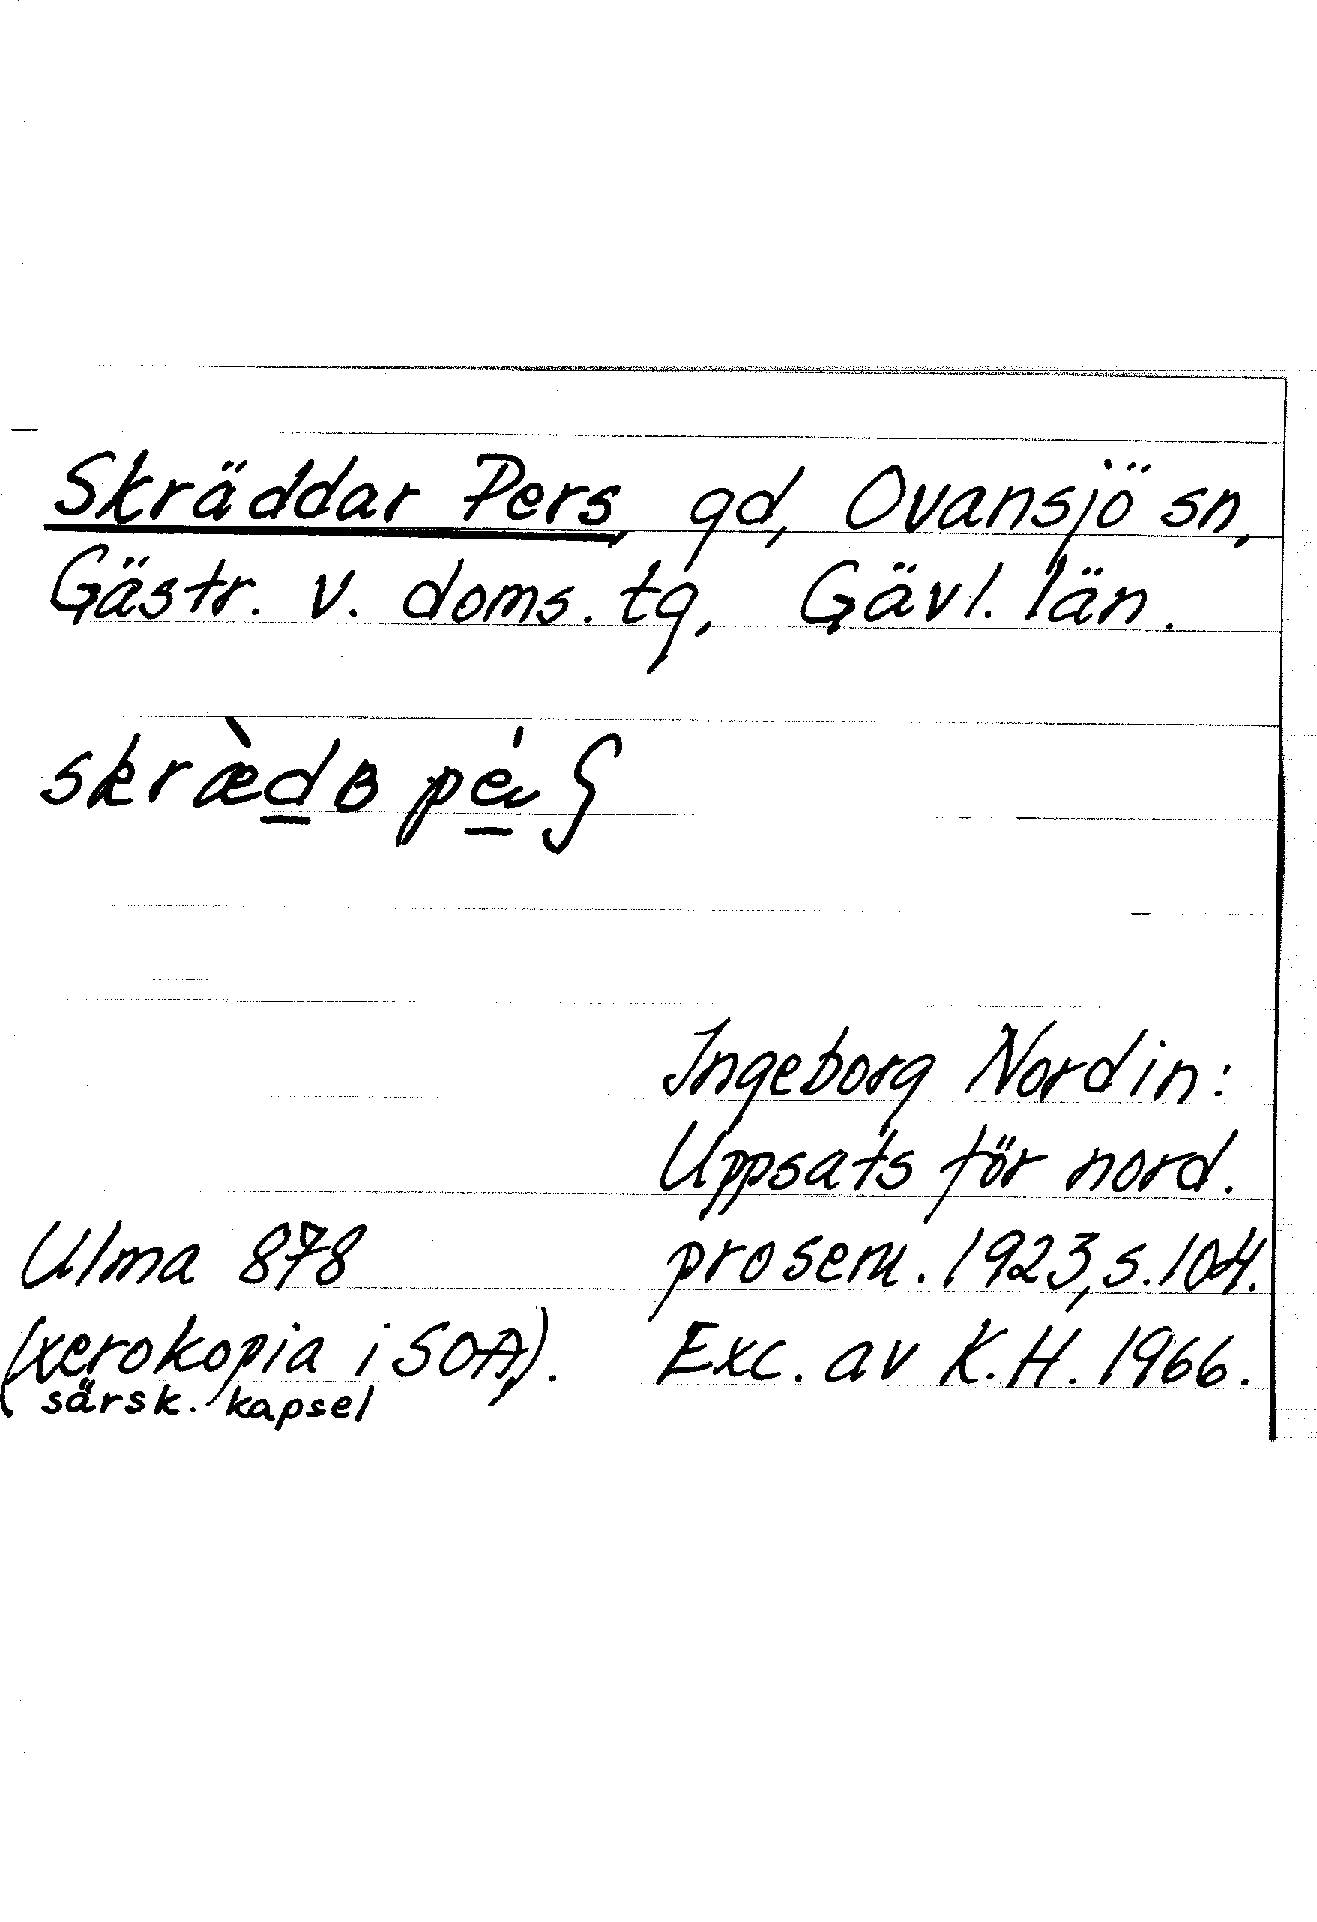 Skräddar Pers, gd, Ovansjö sn,
Gästr. v. doms. tg, Gävl. län.
Ingeborg Nordin:
Uppsats för nord.
Ulma 878 prosem. 1923, s. 104.
(xerokopia i SOA,). Exc. av K.H. 1966.
särsk. kapsel